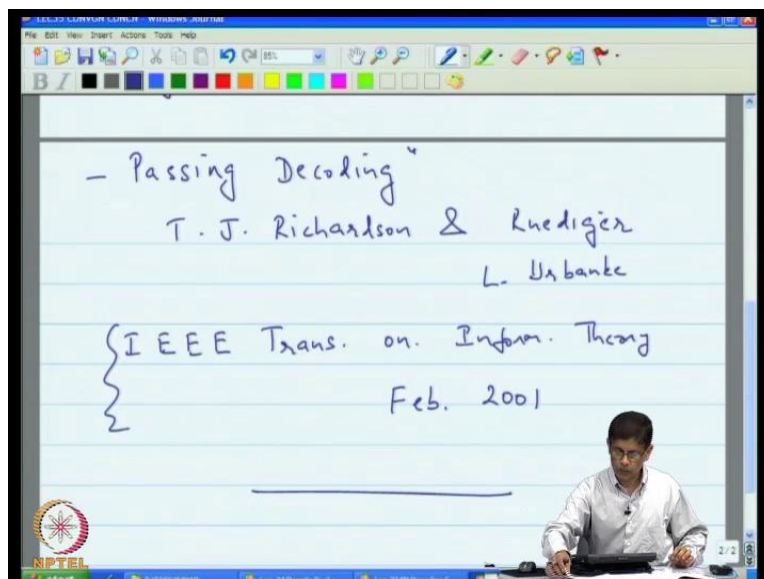 LEC35 CONVGN CONCN - Windows Journal
File Edit View Insert Actions Tools Help
85%
B I
- Passing Decoding"
T. J. Richardson & Ruediger
L. Urbanke
IEEE Trans. on. Inform. Theory
Feb. 2001
2/2
NPTEL